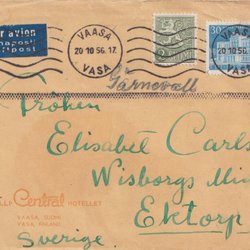 r avion
napostі
lftpost
VAASA
20 10 56.17
VASA
30
Gärnevall
Fröken
Elisabet Carls
Wisborgs
Ektorp
Sverige.
Central
HOTELLET
VAASA, SUOMI
VASA, FINLAND